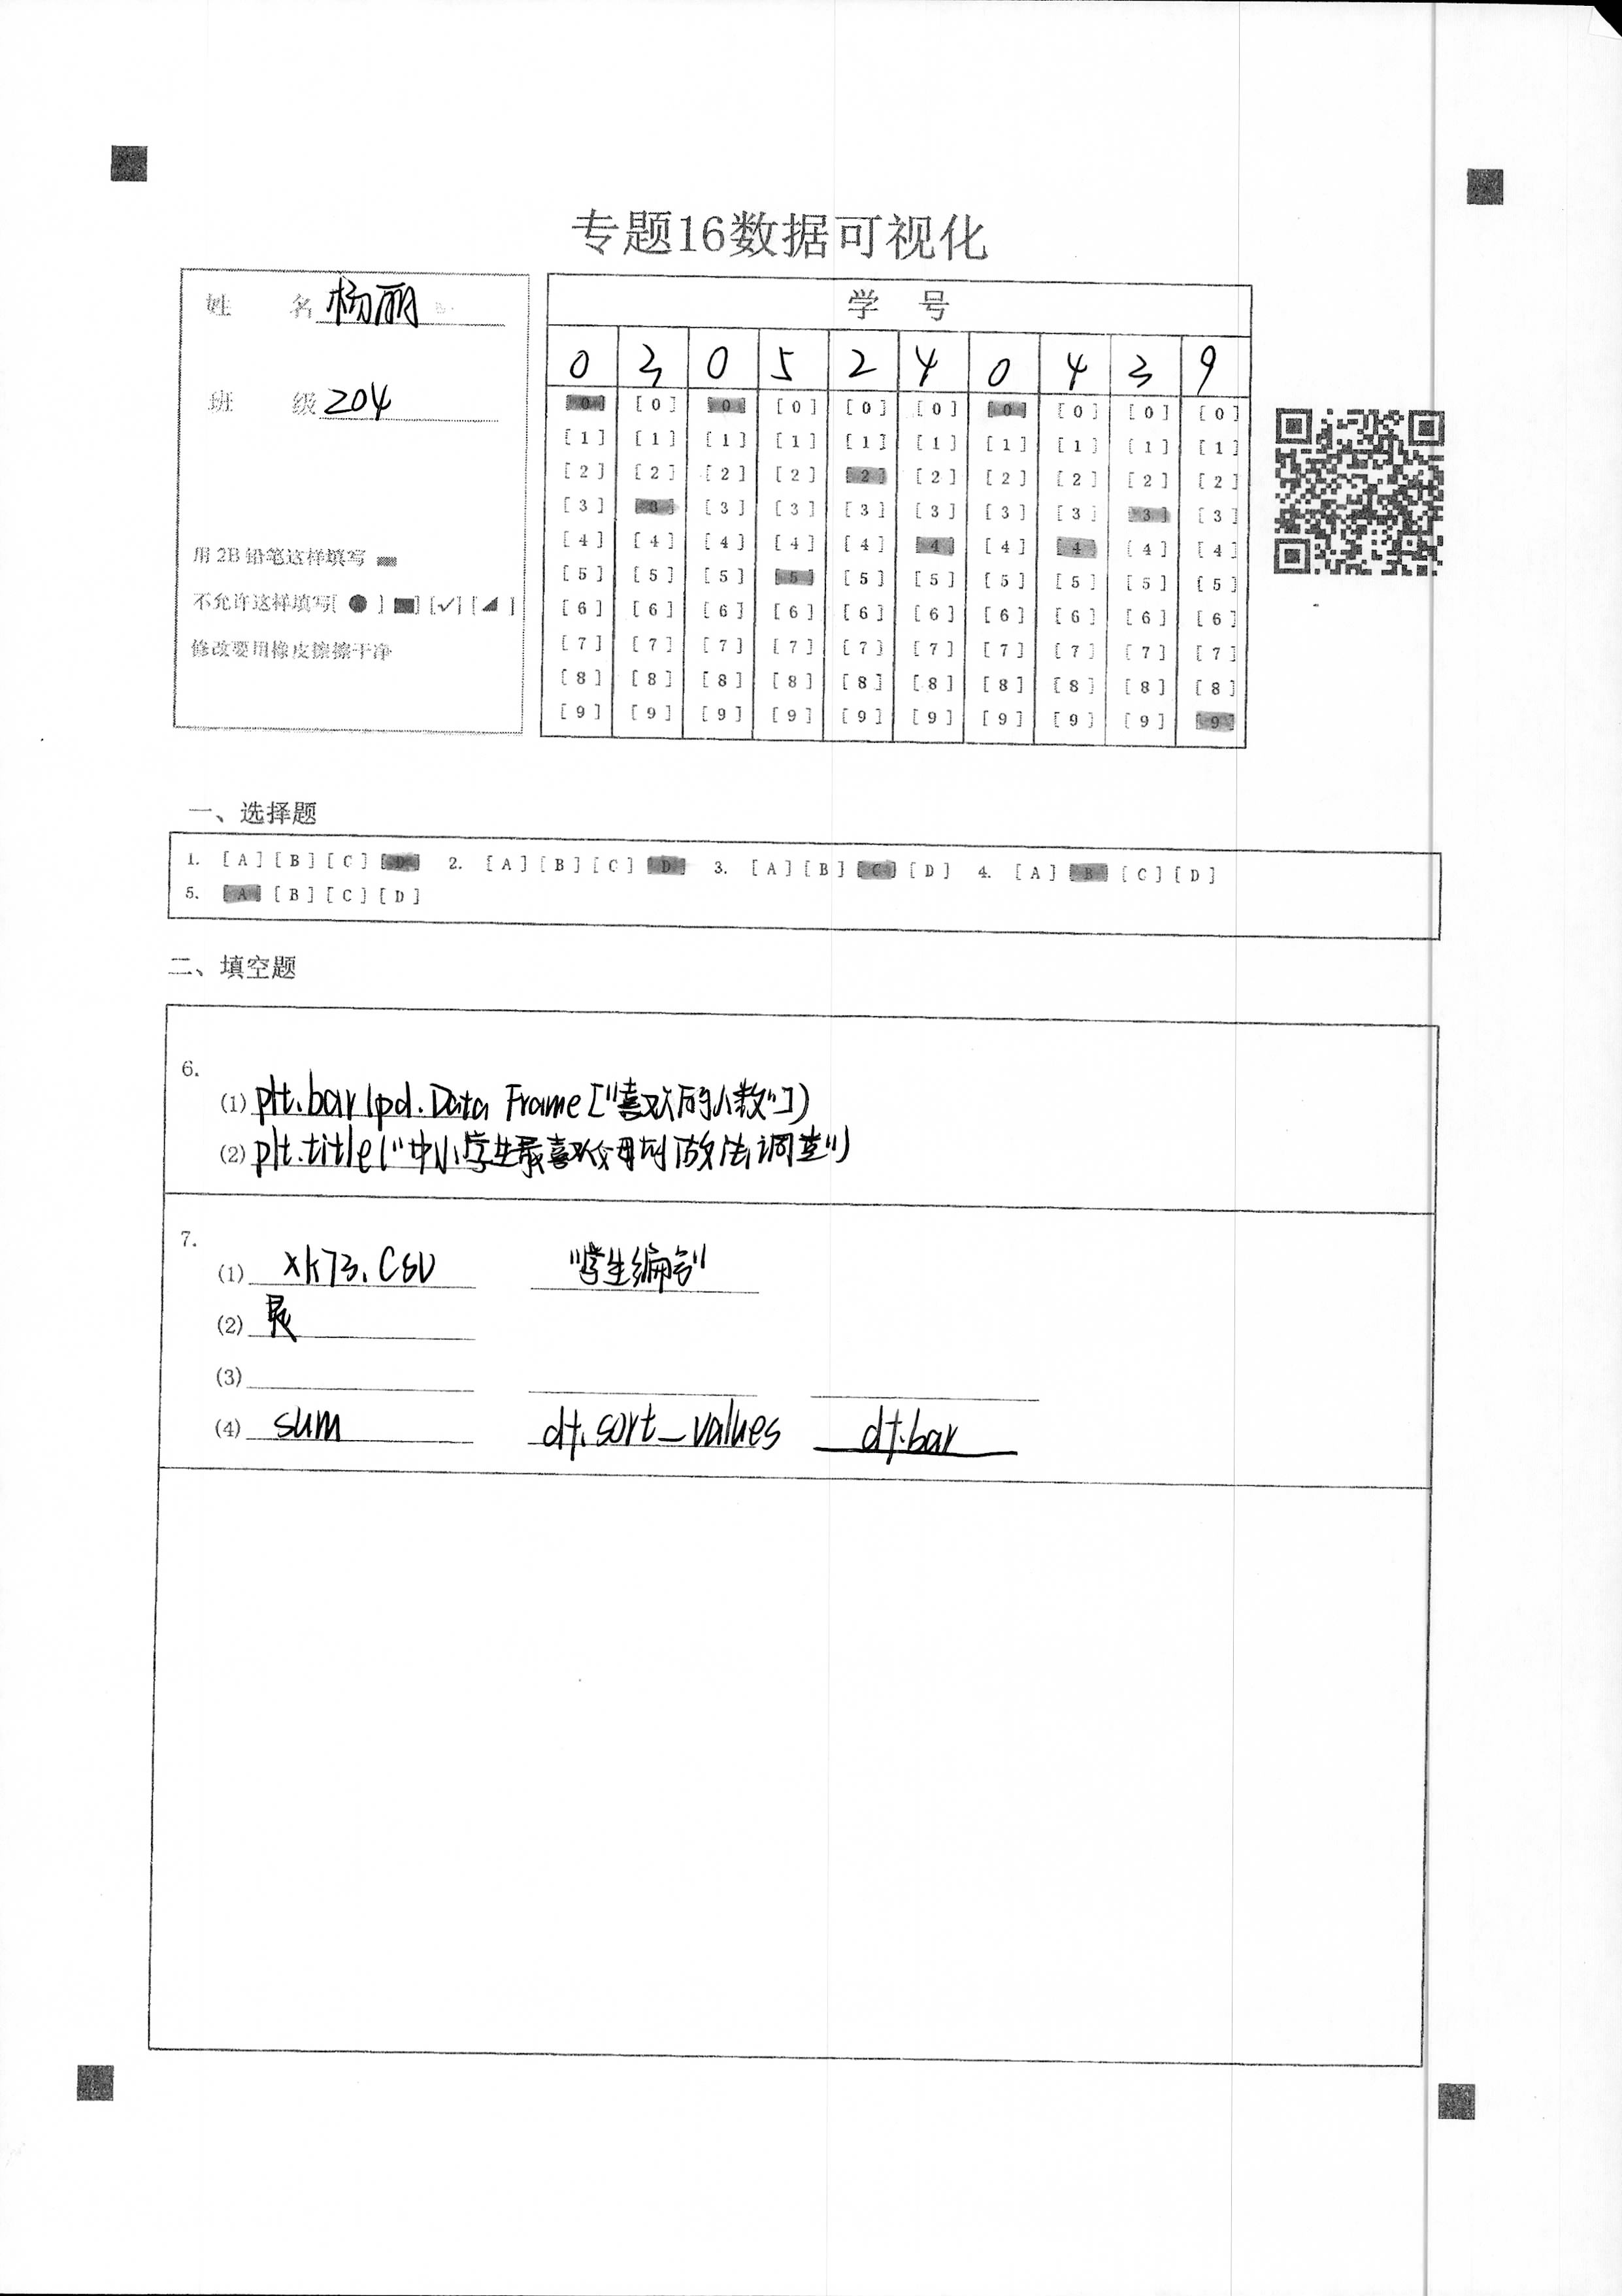 专题16数据可视化
姓 名 杨丽
班 级 204
用 2B 铅笔这样填写
不允许这样填写[ ● ] ■] [✓] [◢ ]
修改要用橡皮擦擦干净
学 号
0 3 0 5 2 4 0 4 3 9
[0] [0] [0] [0] [0] [0] [0] [0] [0] [0]
[1] [1] [1] [1] [1] [1] [1] [1] [1] [1]
[2] [2] [2] [2] [2] [2] [2] [2] [2] [2]
[3] [3] [3] [3] [3] [3] [3] [3] [3] [3]
[4] [4] [4] [4] [4] [4] [4] [4] [4] [4]
[5] [5] [5] [5] [5] [5] [5] [5] [5] [5]
[6] [6] [6] [6] [6] [6] [6] [6] [6] [6]
[7] [7] [7] [7] [7] [7] [7] [7] [7] [7]
[8] [8] [8] [8] [8] [8] [8] [8] [8] [8]
[9] [9] [9] [9] [9] [9] [9] [9] [9] [9]
一、选择题
1. [A] [B] [C] [D] 2. [A] [B] [C] [D] 3. [A] [B] [C] [D] 4. [A] [B] [C] [D]
5. [A] [B] [C] [D]
二、填空题
6.
(1) plt.bar(pd.Data Frame["喜欢的人数"])
(2) plt.title("中小学生最喜欢父母的做法调查")
7.
(1) xk73.csv "学生编号"
(2) 最
(3)
(4) sum df.sort_values df.bar